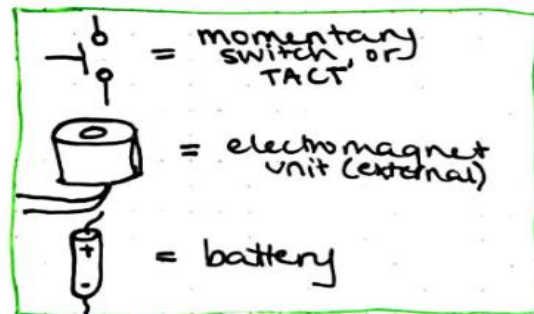 = momentary
switch, or
TACT
= electromagnet
unit (external)
+
-
= battery